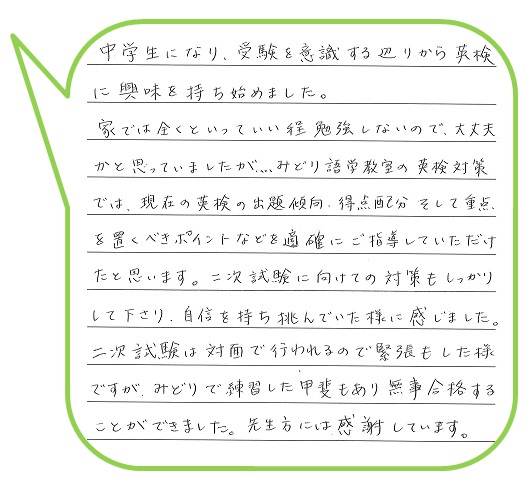 中学生になり、受験を意識する辺りから英検
に興味を持ち始めました。
家では全くといっていい程勉強しないので、大丈夫
かと思っていましたが…みどり語学教室の英検対策
では、現在の英検の出題傾向、得点配分 そして重点
を置くべきポイントなどを適確にご指導していただけ
たと思います。二次試験に向けての対策もしっかり
して下さり、自信を持ち挑んでいた様に感じました。
二次試験は対面で行われるので緊張もした様
ですが、みどりで練習した甲斐もあり無事合格する
ことができました。先生方には感謝しています。